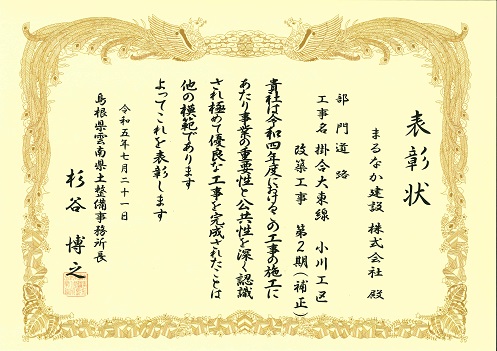 表彰状
まるなか建設 株式会社 殿
部門 道路
工事名 掛合大東線 小川工区
改築工事 第2期(補正)
貴社は令和四年度におけるこの工事の施工に
あたり事業の重要性と公共性を深く認識
され極めて優良な工事を完成されたことは
他の模範であります
よってこれを表彰します
令和五年七月二十一日
島根県雲南県土整備事務所長
杉谷 博之